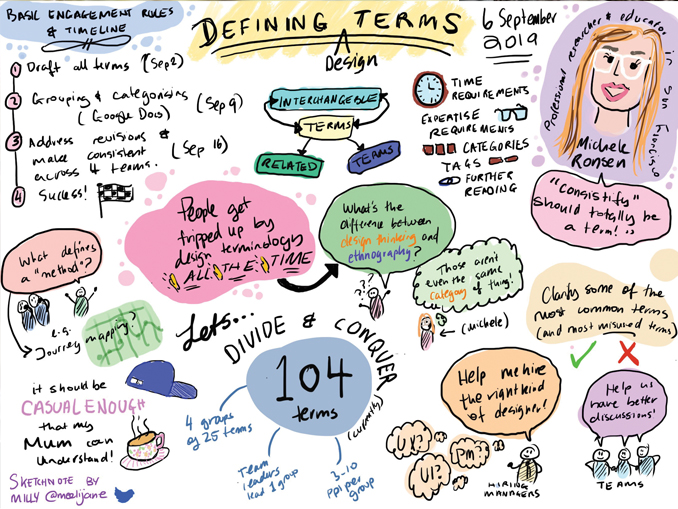 BASIC ENGAGEMENT RULES
& TIMELINE
1 Draft all terms (Sep 2)
2 Grouping & categorising (Sep 9)
(Google Docs)
3 Address revisions &
make consistent (Sep 16)
across 4 teams.
4 Success!
DEFINING TERMS
Design
6 September
2019
INTERCHANGEABLE
TERMS
RELATED
TERMS
TIME
REQUIREMENTS
EXPERTISE
REQUIREMENTS
CATEGORIES
TAGS
FURTHER
READING
Professional researcher & educator in San Francisco
Michele
Ronsen
"consistify"
should totally be
a term!
People get
tripped up by
design terminology
ALL THE TIME
What's the
difference between
design thinking and
ethnography?
Those aren't
even the same
category of thing!
(Michele)
What defines
a "method"?
e.g.
Journey mapping?
Clarify some of the
most common terms
(and most misused terms)
Let's...
DIVIDE & CONQUER
104
terms
(currently)
4 groups
of 25 terms
Team
leaders
lead 1 group
3-10
ppl per
group
it should be
CASUAL ENOUGH
that my
Mum can
understand!
Help me hire
the right kind
of designer!
UX?
UI?
PM?
HIRING
MANAGERS
Help us
have better
discussions!
TEAMS
SKETCHNOTE BY
MILLY @meelijane